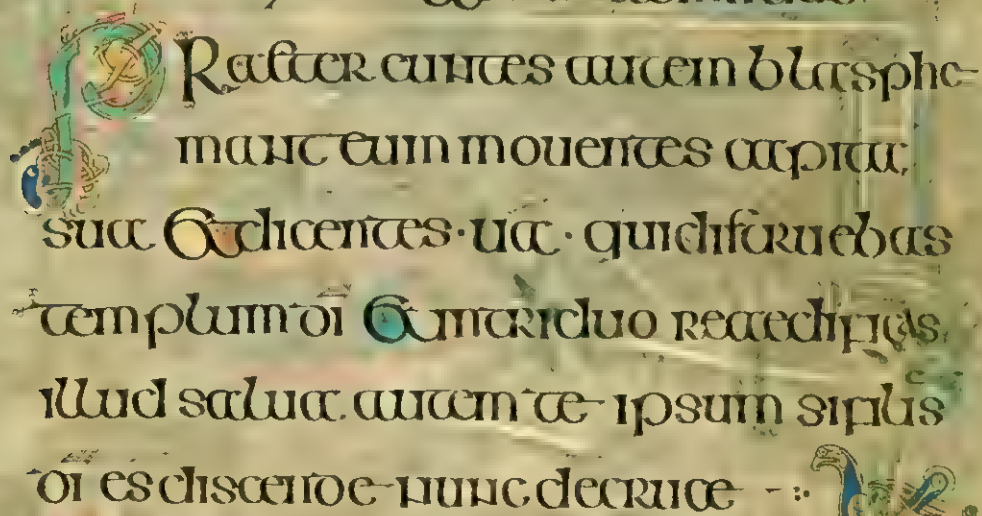 PRaeteruntes autem blasphe-
mant eum mouentes capita
sua Et dicentes · ua · qui disturuebas
templum dī Et in triduo reaedificas
illud salua autem te ipsum si filius
dī es discende nunc de cruce